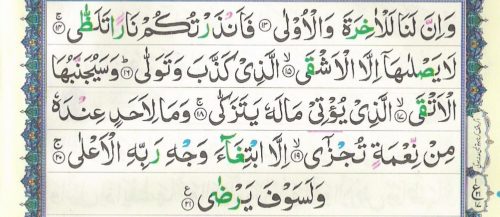 وَاِنَّ لَنَا لَلْاٰخِرَةَ وَالْاُوْلٰى ۝۱۳ فَاَنْذَرْتُكُمْ نَارًا تَلَظّٰى ۝۱۴
لَا يَصْلٰىهَاۤ اِلَّا الْاَشْقَى ۝۱۵ الَّذِىْ كَذَّبَ وَتَوَلّٰى ۝۱۶ وَسَيُجَنَّبُهَا
الْاَتْقَى ۝۱۷ الَّذِىْ يُؤْتِىْ مَالَهٗ يَتَزَكّٰى ۝۱۸ وَمَا لِاَحَدٍ عِنْدَهٗ
مِنْ نِّعْمَةٍ تُجْزٰٓى ۝۱۹ اِلَّا ابْتِغَآءَ وَجْهِ رَبِّهِ الْاَعْلٰى ۝۲۰
وَلَسَوْفَ يَرْضٰى ۝۲۱